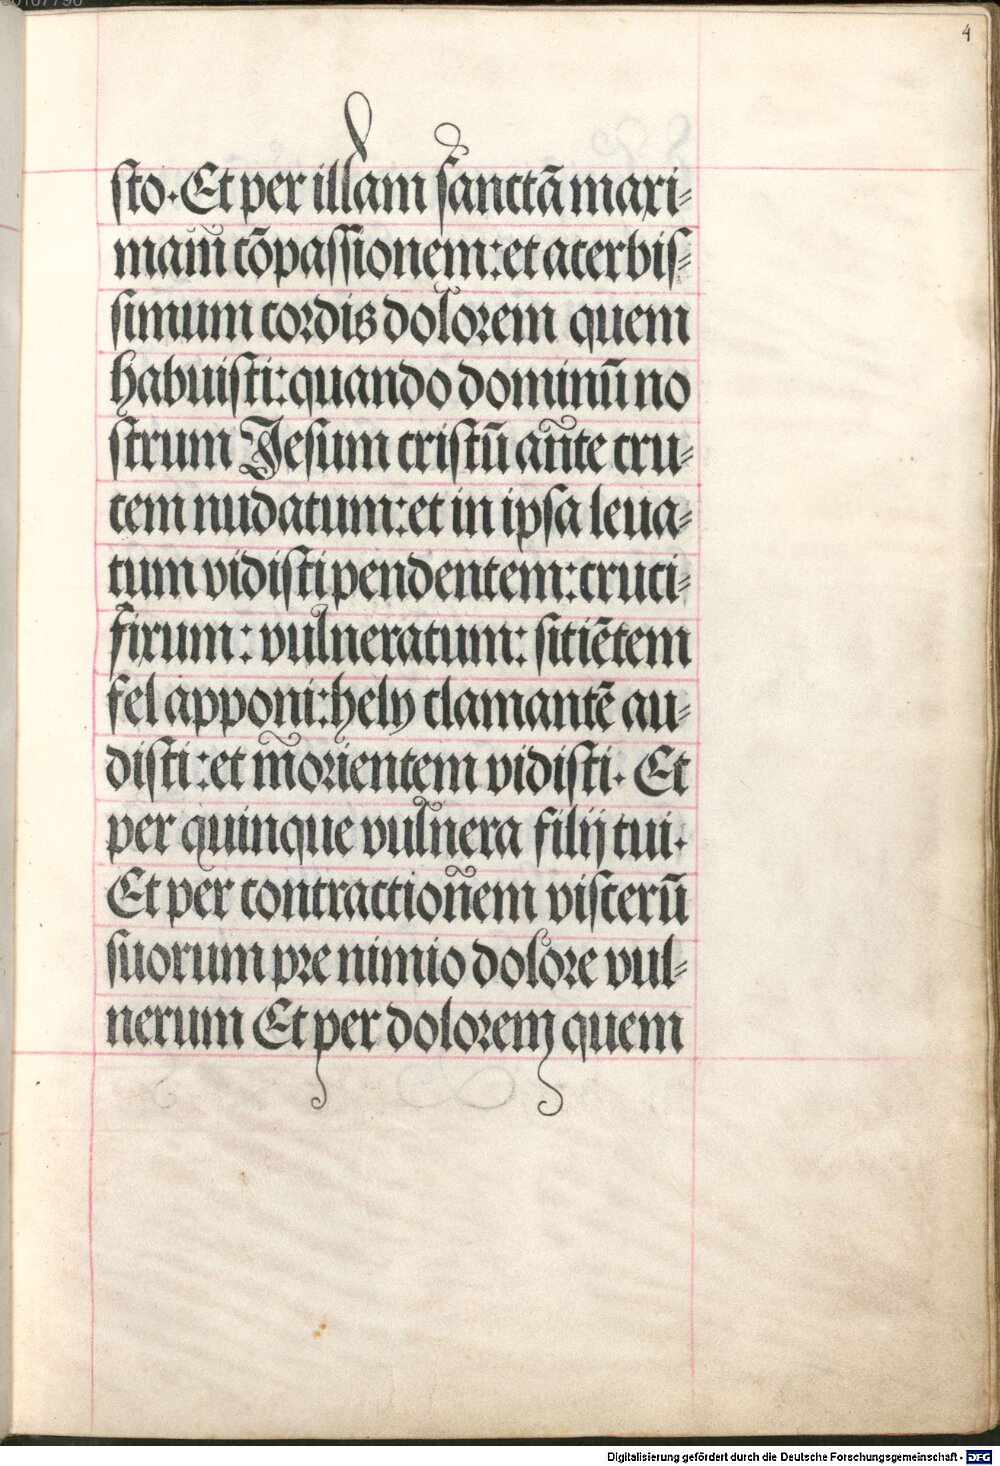 00107796
4
ſto. Et per illam ſanctā maxi⸗
mam cōpaſſionem: et acerbiſ⸗
ſimum cordis dolorem quem
habuiſti: quando dominū no
ſtrum Jeſum criſtū ante cru⸗
cem nudatum: et in ipſa leua⸗
tum vidiſti pendentem: cruci⸗
fixum: vulneratum: ſitiētem
fel apponi: hely clamantē au⸗
diſti: et morientem vidiſti. Et
per quinque vulnera filij tui.
Et per contractionem viſcerū
ſuorum pre nimio dolore vul⸗
nerum Et per dolorem quem
Digitalisierung gefördert durch die Deutsche Forschungsgemeinschaft - DFG